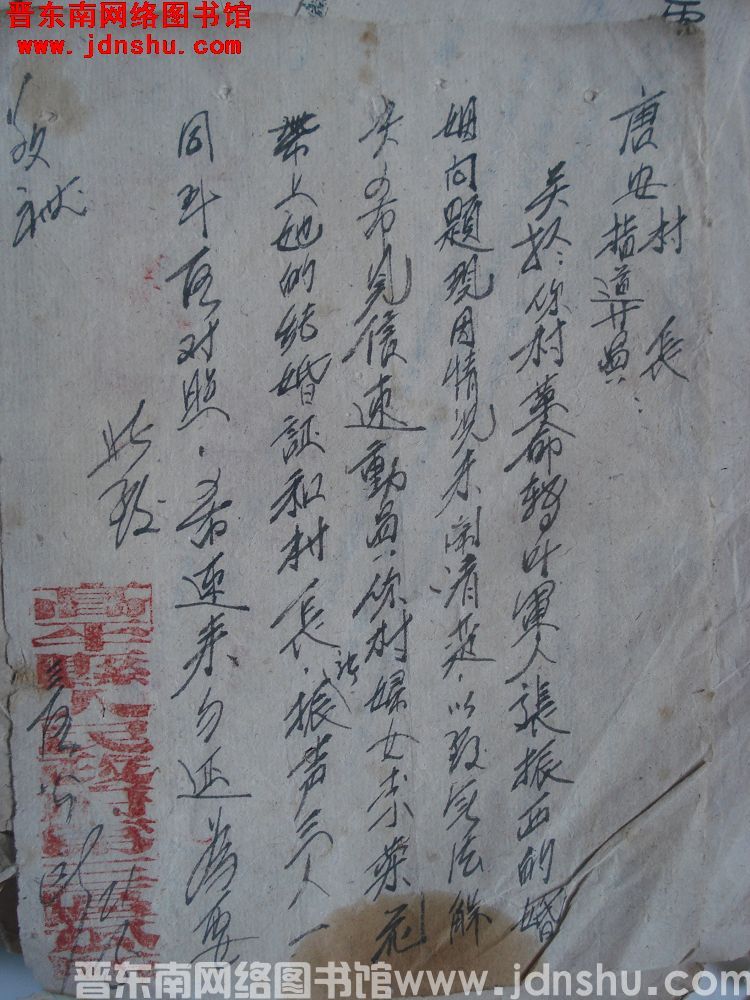 晋东南网络图书馆
www.jdnshu.com
唐安村 長
指導員：
关於你村革命转业軍人張振西的婚
姻问題現因情况未闹清楚，以致无法解
决，希見信速動員你村婦女李葉花
帶上她的结婚証和村長，張振声三人一
同到區对照，希速来勿延為要
此致
敬礼
三區公所
晋东南网络图书馆 www.jdnshu.com